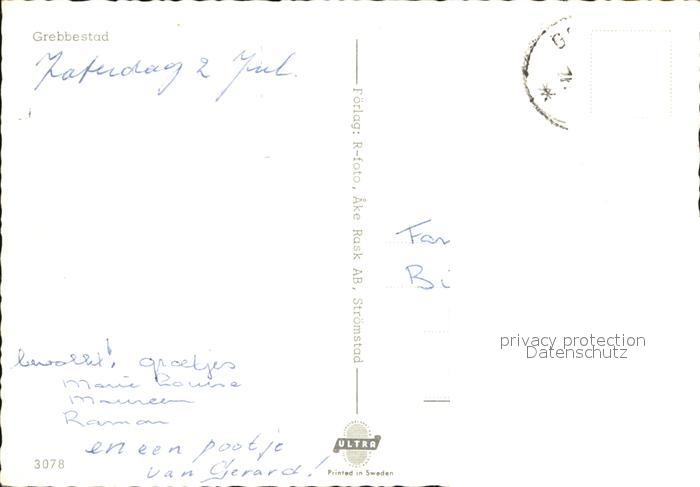 Grebbestad
Zaterdag 2 Juli.
Förlag: R-foto, Åke Rask AB, Strömstad
Fam
Bi
privacy protection
Datenschutz
bewolkt! groetjes
Marie Louise
Maureen
Ramon
en een pootje
van Gerard!
3078
ULTRA
Printed in Sweden